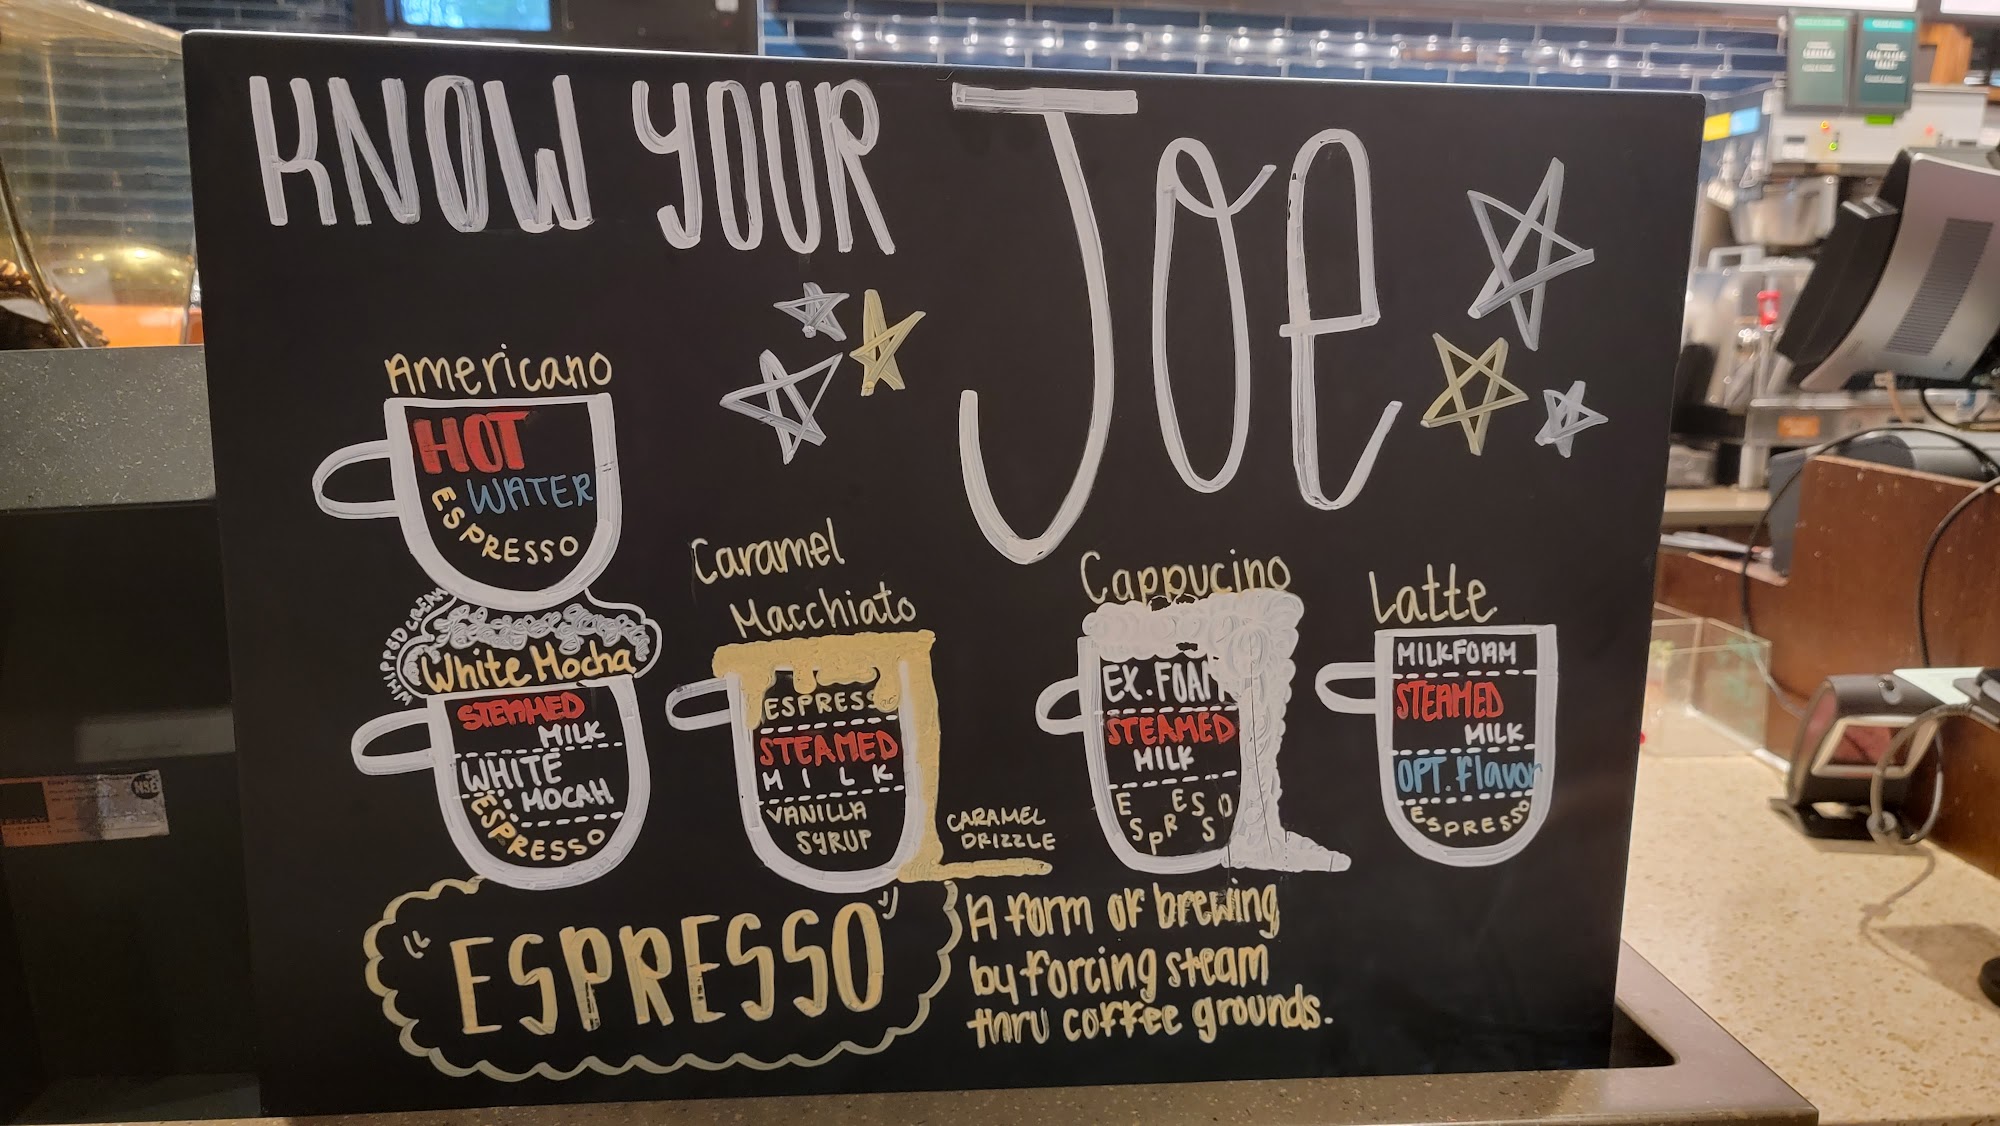 KNOW YOUR JOE
Americano
HOT
WATER
ESPRESSO
WHIPPED CREAM
White Mocha
STEAMED
MILK
WHITE
MOCAH
ESPRESSO
Caramel
Macchiato
ESPRESS
STEAMED
MILK
VANILLA
SYRUP
CARAMEL
DRIZZLE
Cappucino
EX. FOAM
STEAMED
MILK
ESPRESSO
Latte
MILKFOAM
STEAMED
MILK
OPT. flavor
ESPRESSO
"ESPRESSO"
A form of brewing
by forcing steam
thru coffee grounds.